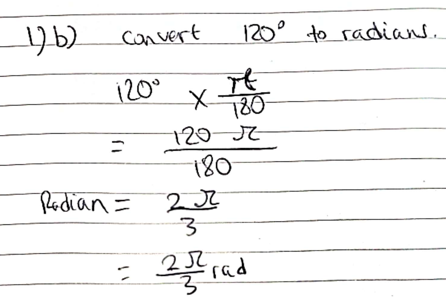 1) b) convert 120° to radians.
120° × π/180
= 120 π/180
Radian = 2π/3
= 2π/3 rad